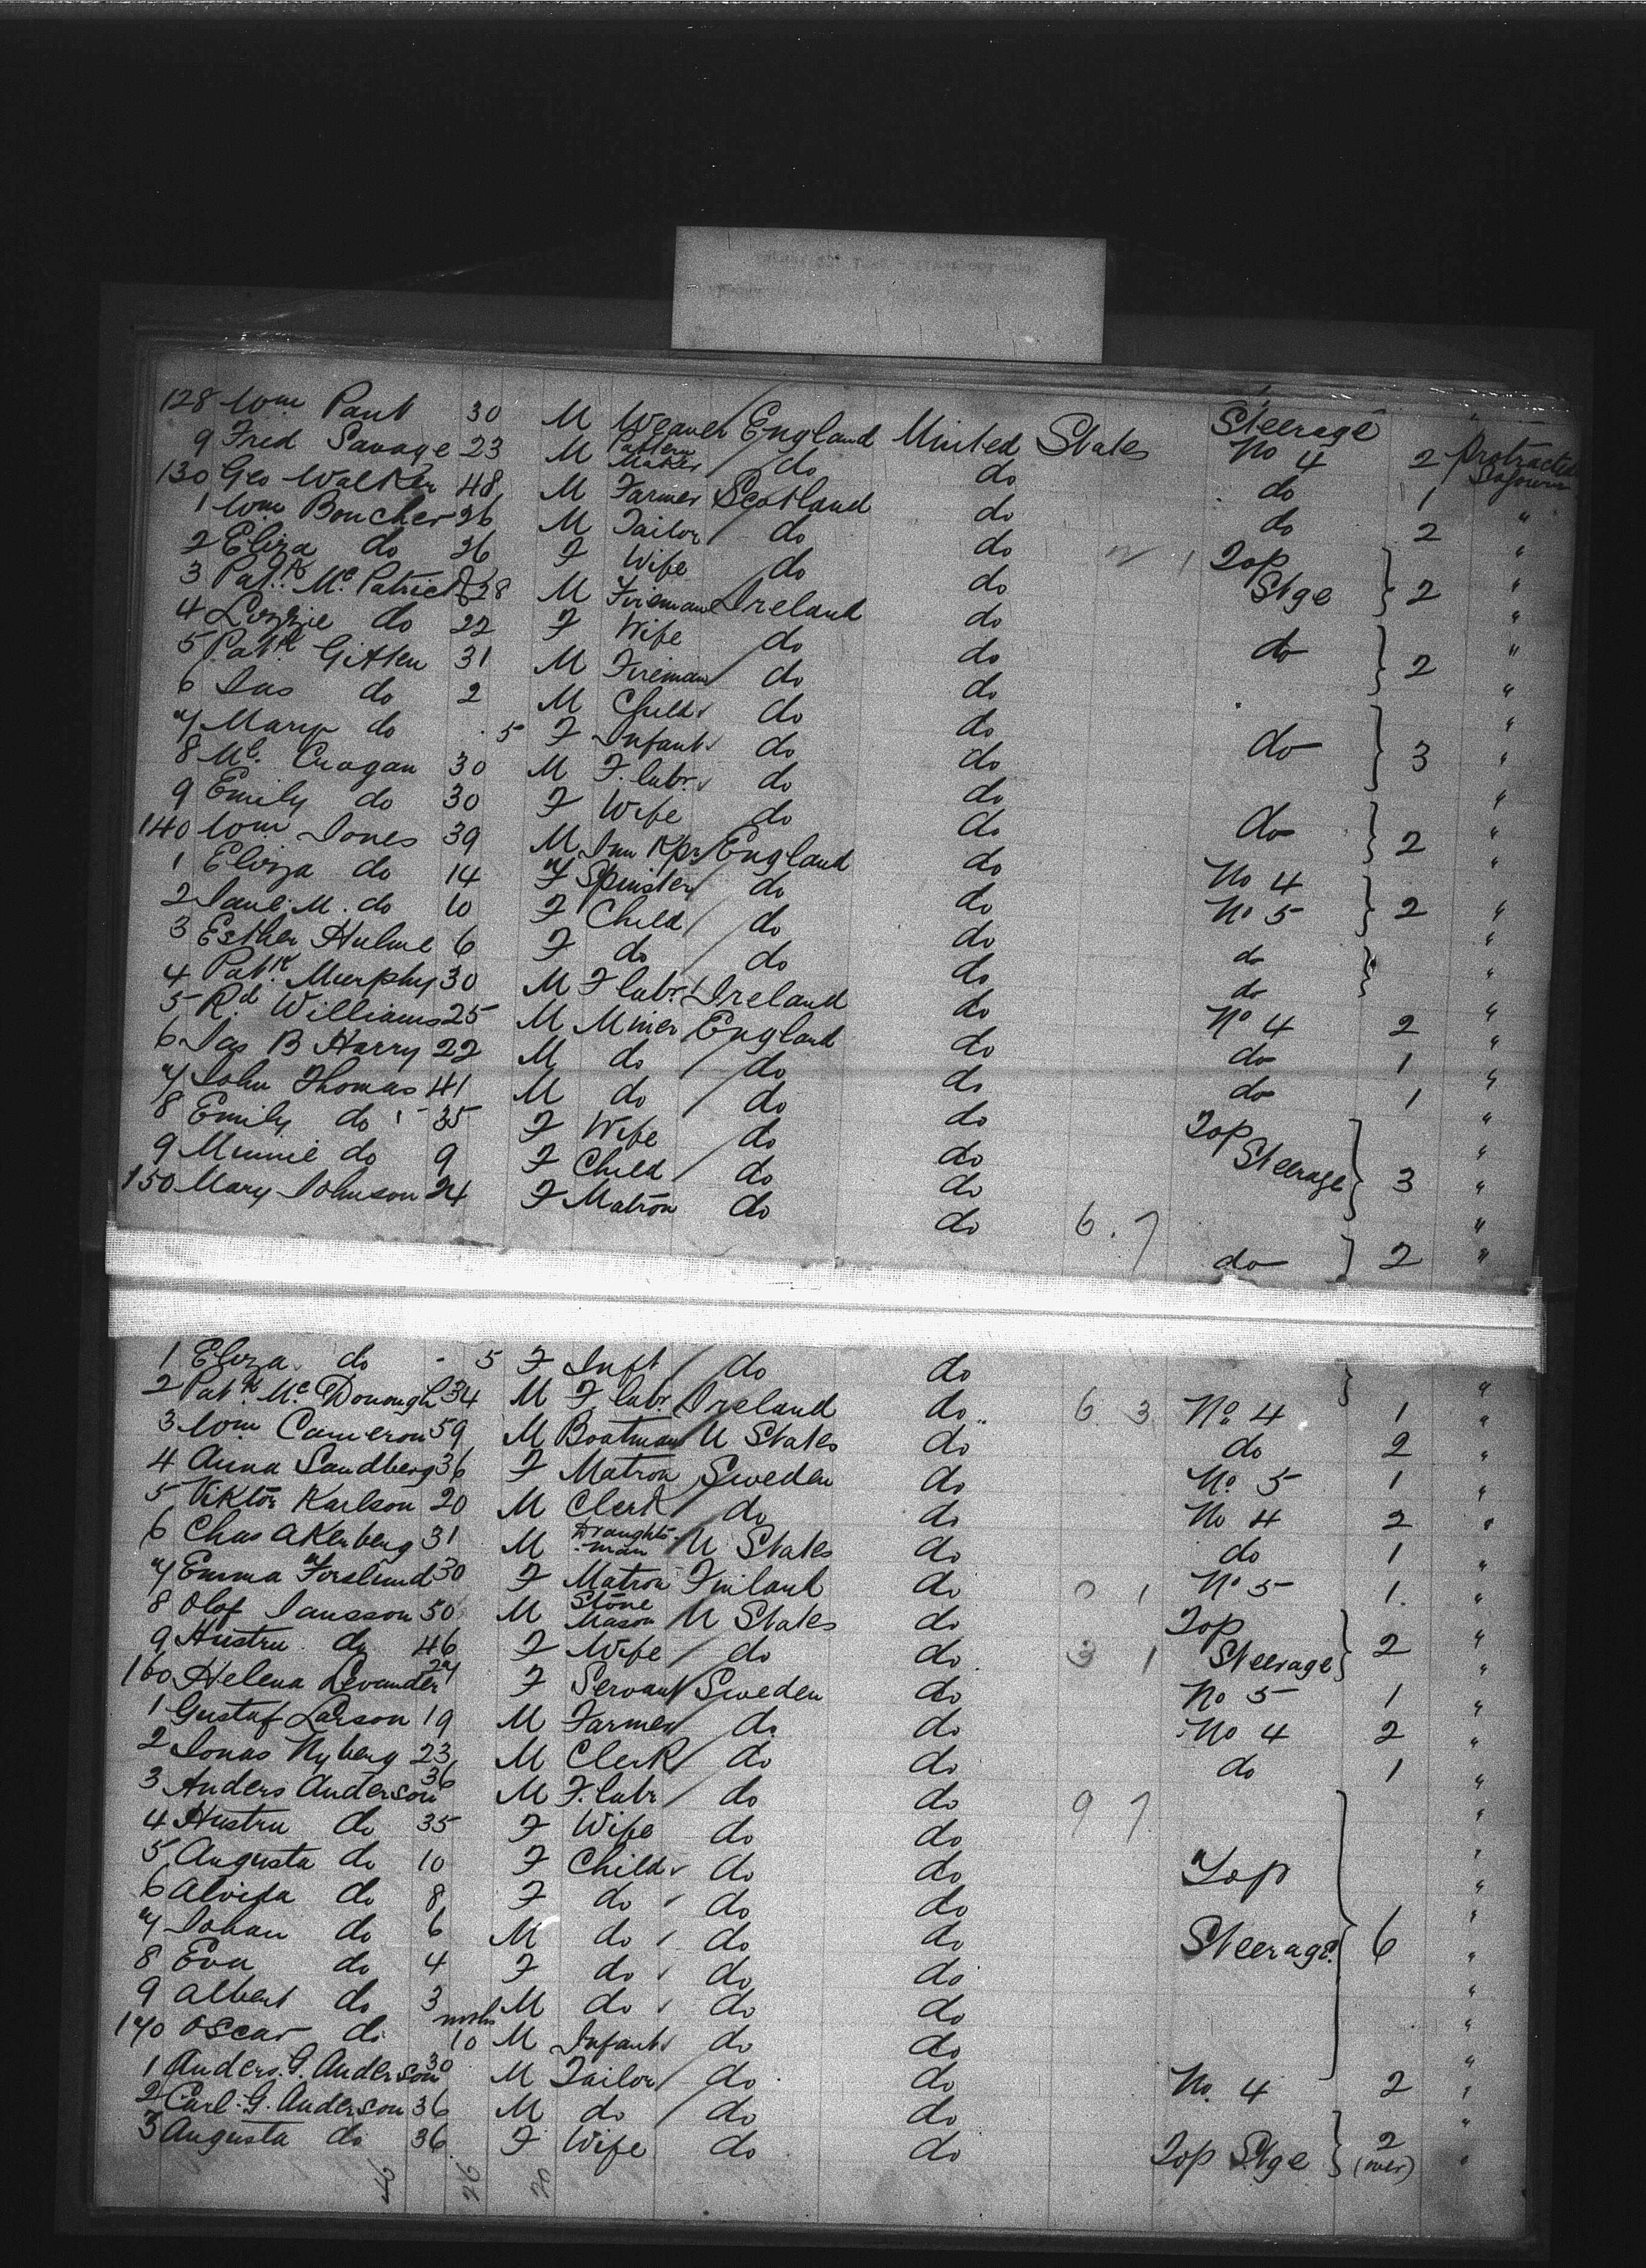 128 Wm Pant 30 M Weaver England United States Steerage No 4 2 Protracted Sojourn
9 Fred Savage 23 M Pattern Maker do do do 1 "
130 Geo Walker 48 M Farmer Scotland do do 2 "
1 Wm Boucher 26 M Tailor do do Top Stge } 2 "
2 Eliza do 26 F Wife do do "
3 Patk. Mc Patrick 28 M Fireman Ireland do do } 2 "
4 Lizzie do 22 F Wife do do "
5 Patk Gitten 31 M Fireman do do do } 3 "
6 Jas do 2 M Child do do "
7 Mary do 5 F Infant do do "
8 Ml. Cragan 30 M F. labr. do do do } 2 "
9 Emily do 30 F Wife do do "
140 Wm Jones 39 M Inn Kpr England do No 4 } 2 "
1 Eliza do 14 F Spinster do do No 5 "
2 Jane M. do 10 F Child do do do } "
3 Esther Hulme 6 F do do do do "
4 Patk Murphy 30 M F labr. Ireland do No 4 2 "
5 Rd. Williams 25 M Miner England do do 1 "
6 Jas B Harry 22 M do do do do 1 "
7 John Thomas 41 M do do do Top Steerage } 3 "
8 Emily do 35 F Wife do do "
9 Minnie do 9 F Child do do "
150 Mary Johnson 24 F Matron do do 6. 7 do } 2 "
1 Eliza do 5 F Inft do do "
2 Patk. Mc Donough 34 M F. labr. Ireland do 6 3 No 4 1 "
3 Wm Cameron 59 M Boatman U States do do 2 "
4 Anna Sandberg 36 F Matron Sweden do No. 5 1 "
5 Viktor Karlson 20 M Clerk do do No 4 2 "
6 Chas Akerberg 31 M Draughts-man U States do do 1 "
7 Emma Forslund 30 F Matron Finland do 0 1 No 5 1. "
8 Olof Jansson 50 M Stone Mason U States do Top Steerage } 2 "
9 Hustru do 46 F Wife do do 3 1 "
160 Helena Levander 27 F Servant Sweden do No 5 1 "
1 Gustaf Larson 19 M Farmer do do No 4 2 "
2 Jonas Nyberg 23 M Clerk do do do 1 "
3 Anders Anderson 36 M F. labr do do 9 7 Top Steerage } 6 "
4 Hustru do 35 F Wife do do "
5 Augusta do 10 F Child do do "
6 Alvida do 8 F do do do "
7 Johan do 6 M do do do "
8 Eva do 4 F do do do "
9 Albert do 3 M do do do "
170 Oscar do mths 10 M Infant do do "
1 Anders. G. Anderson 30 M Tailor do do No. 4 2 "
2 Carl. G. Anderson 36 M do do do Top Stge } 2 (over) "
3 Augusta do 36 F Wife do do "
46 26 20